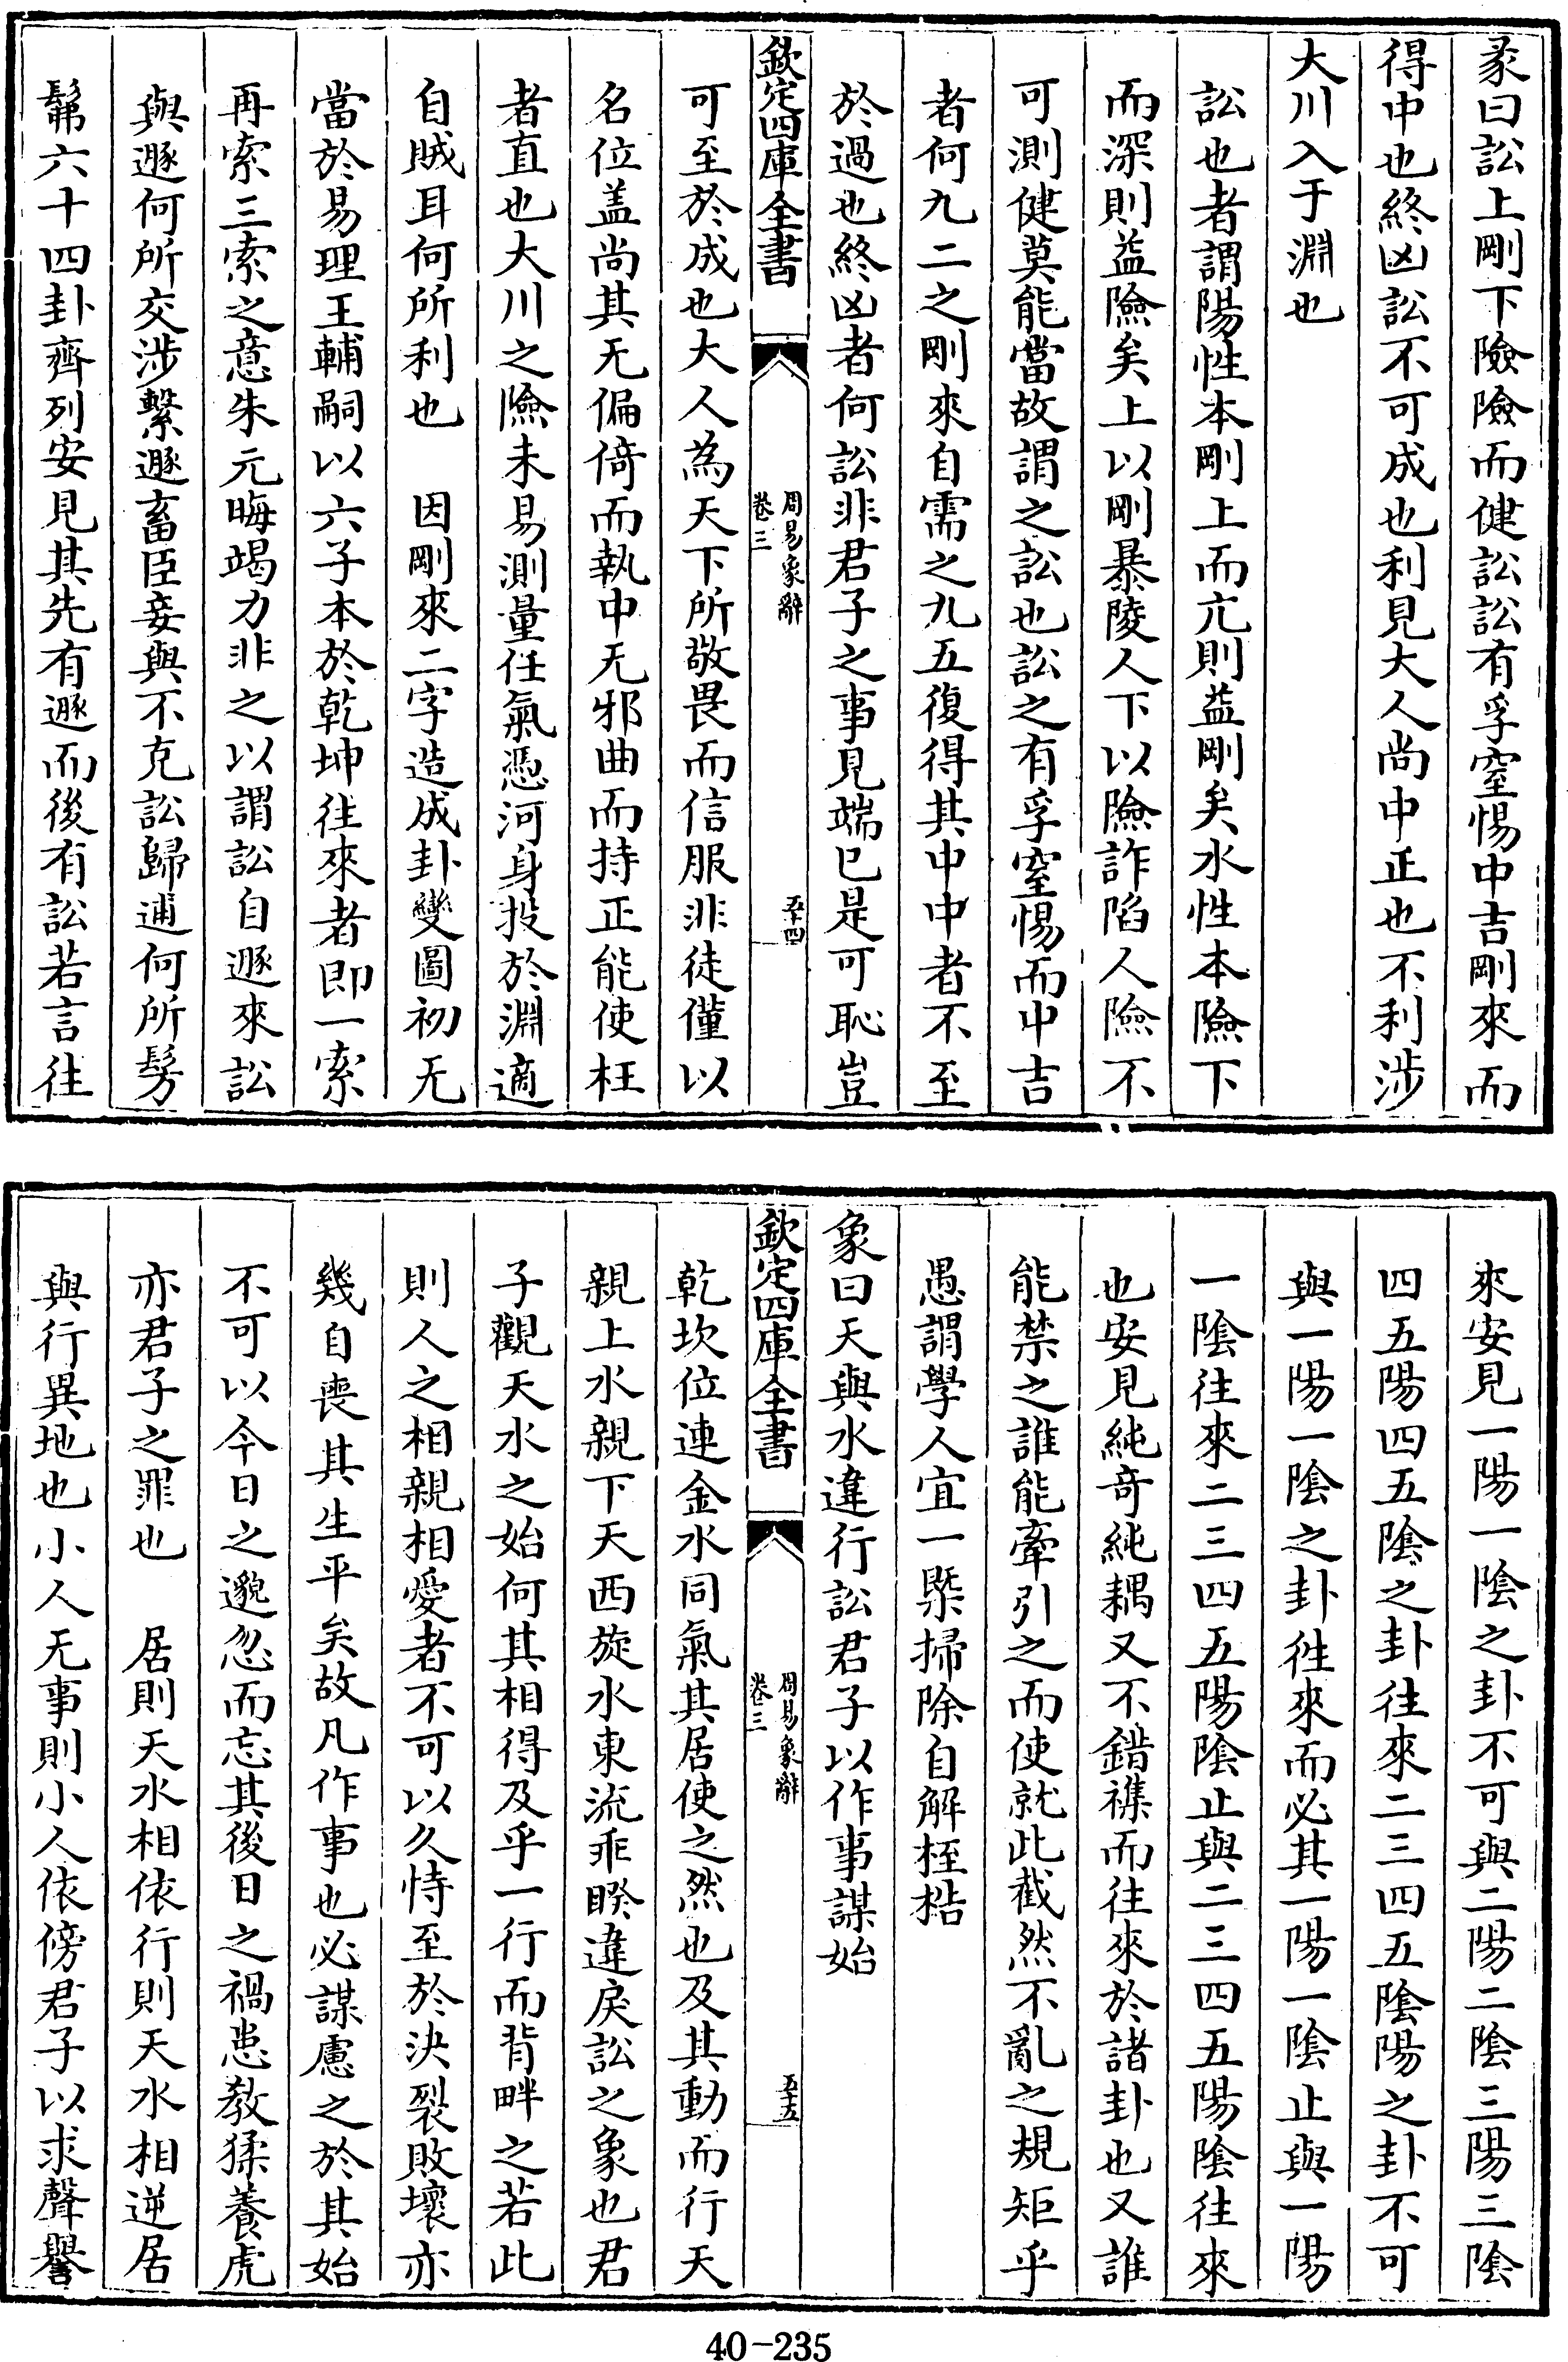 彖曰訟上剛下險險而健訟訟有孚窒惕中吉剛來而
得中也終凶訟不可成也利見大人尚中正也不利涉
大川入于淵也
訟也者謂陽性本剛上而亢則益剛矣水性本險下
而深則益險矣上以剛暴陵人下以險詐陷人險不
可測健莫能當故謂之訟也訟之有孚窒惕而中吉
者何九二之剛來自需之九五復得其中中者不至
於過也終凶者何訟非君子之事見端已是可恥豈
欽定四庫全書
周易象辭
卷三
五十四
可至於成也大人為天下所敬畏而信服非徒僅以
名位盖尚其无偏倚而執中无邪曲而持正能使枉
者直也大川之險未易測量任氣憑河身投於淵適
自賊耳何所利也 因剛來二字造成卦變圖初无
當於易理王輔嗣以六子本於乾坤往來者即一索
再索三索之意朱元晦竭力非之以謂訟自遯來訟
與遯何所交涉繫遯畜臣妾與不克訟歸逋何所髣
髴六十四卦齊列安見其先有遯而後有訟若言往
來安見一陽一陰之卦不可與二陽二陰三陽三陰
四五陽四五陰之卦往來二三四五陰陽之卦不可
與一陽一陰之卦徃來而必其一陽一陰止與一陽
一陰往來二三四五陽陰止與二三四五陽陰往來
也安見純奇純耦又不錯襍而往來於諸卦也又誰
能禁之誰能牽引之而使就此截然不亂之規矩乎
愚謂學人宜一槩掃除自解桎梏
象曰天與水違行訟君子以作事謀始
欽定四庫全書
周易象辭
卷三
五十五
乾坎位連金水同氣其居使之然也及其動而行天
親上水親下天西旋水東流乖睽違戾訟之象也君
子觀天水之始何其相得及乎一行而背畔之若此
則人之相親相愛者不可以久恃至於決裂敗壞亦
幾自喪其生平矣故凡作事也必謀慮之於其始
不可以今日之邈忽而忘其後日之禍患教猱養虎
亦君子之罪也 居則天水相依行則天水相逆居
與行異地也小人无事則小人依傍君子以求聲譽
40-235